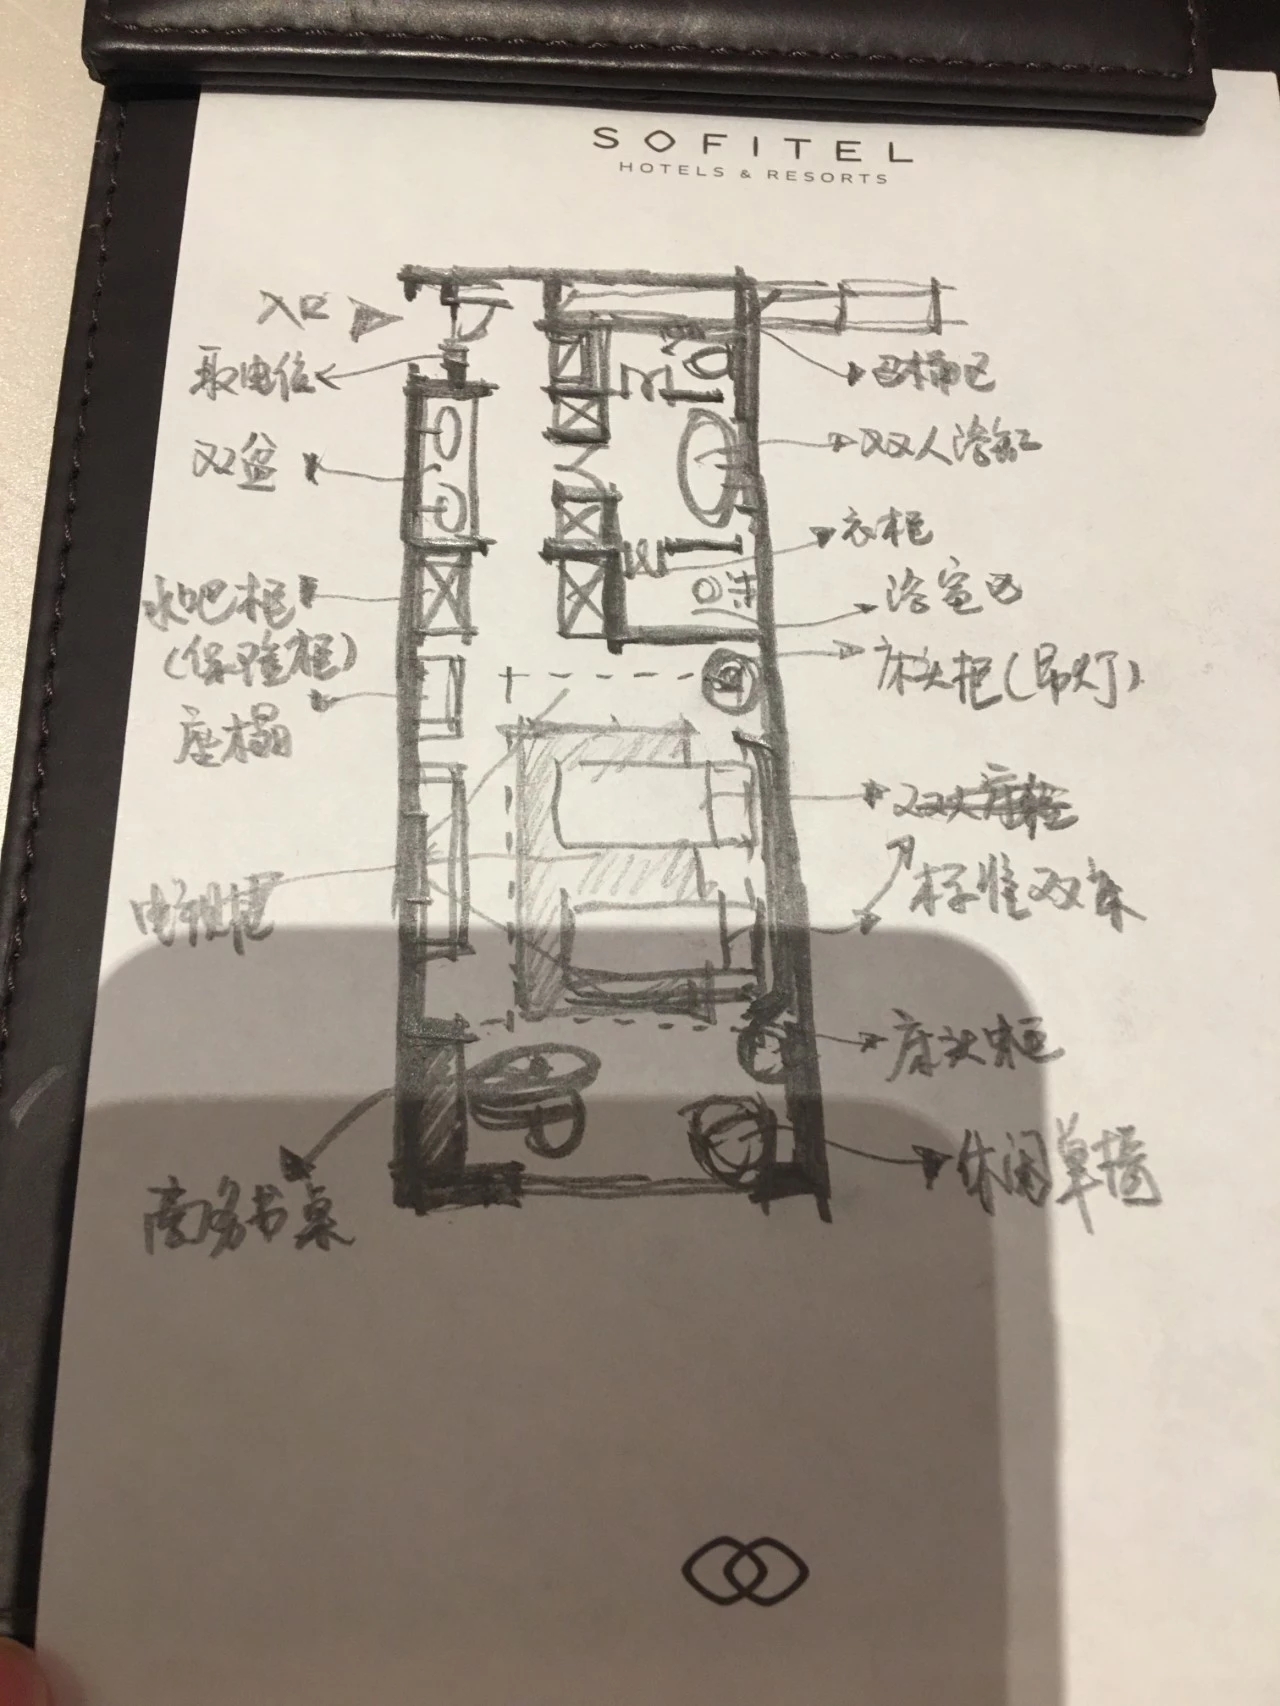 SOFITEL
HOTELS & RESORTS
入口
取电位
双盆
水吧柜
(保险柜)
座榻
电视柜
商务书桌
马桶区
双人浴缸
衣柜
浴室区
床头柜(吊灯)
标准双床
床头柜
休闲单椅